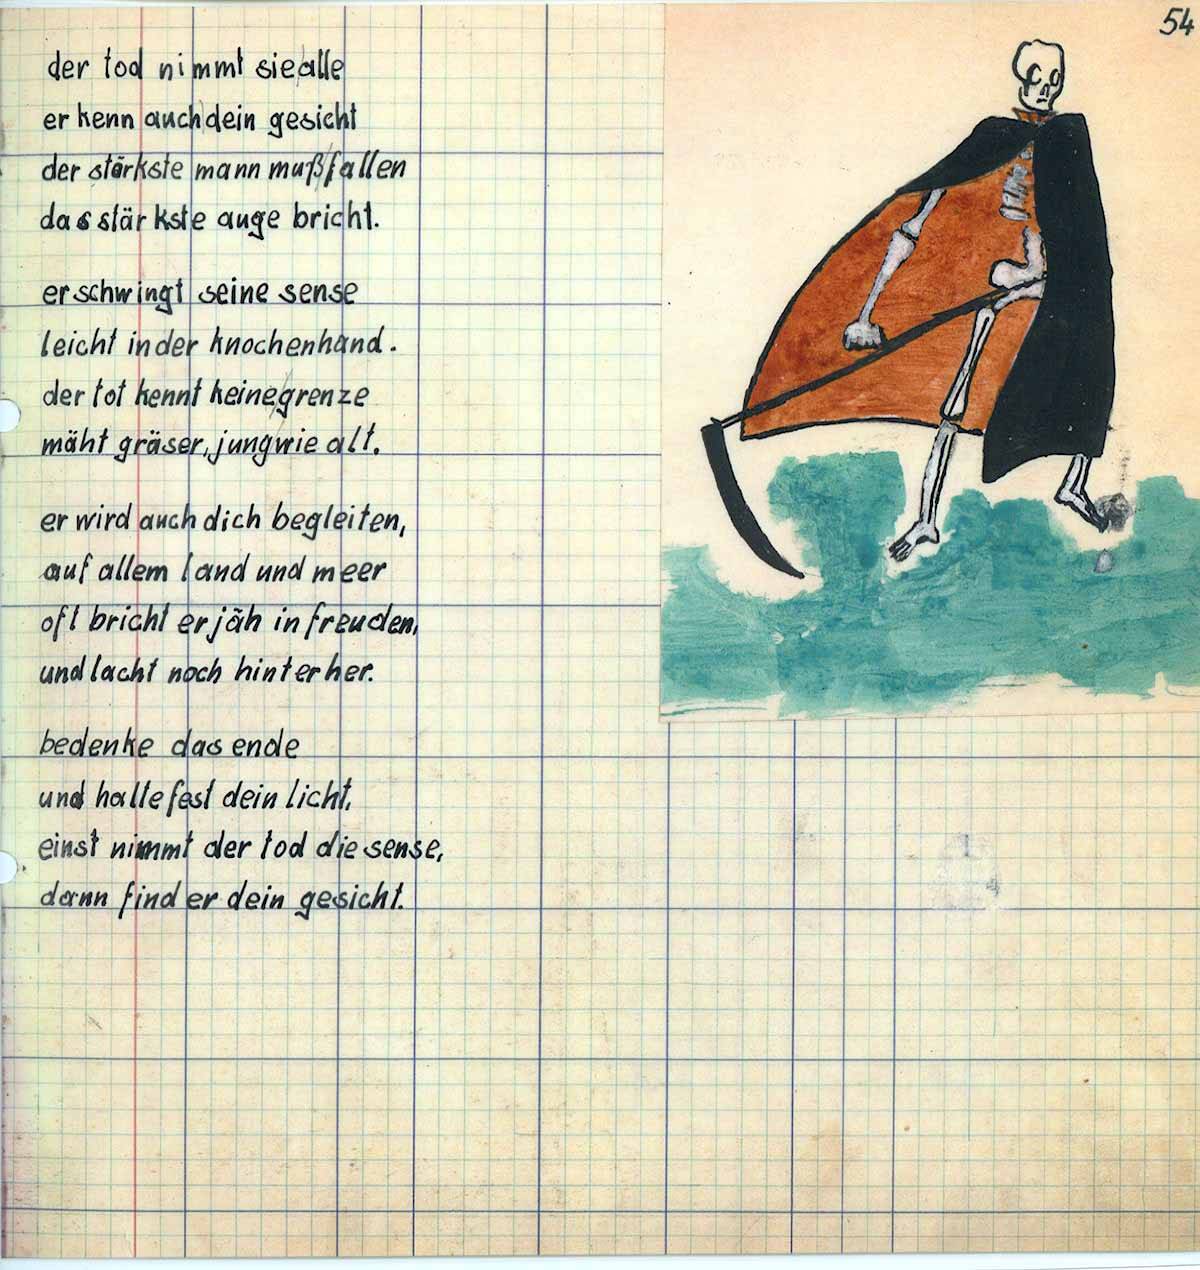 54
der tod nimmt sie alle
er kenn auch dein gesicht
der stärkste mann muß fallen
das stärkste auge bricht.
er schwingt seine sense
leicht in der knochenhand.
der tot kennt keine grenze
mäht gräser, jung wie alt.
er wird auch dich begleiten,
auf allem land und meer
oft bricht er jäh in freuden,
und lacht noch hinterher.
bedenke das ende
und halte fest dein licht,
einst nimmt der tod die sense,
dann find er dein gesicht.